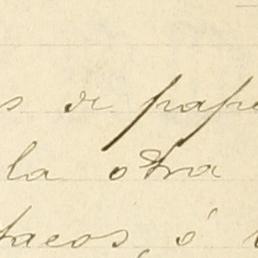 s de pape
la otra
tacos, ó